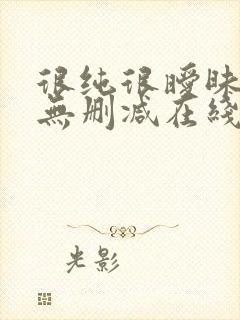 很纯很暧昧
無删减在綫
光影